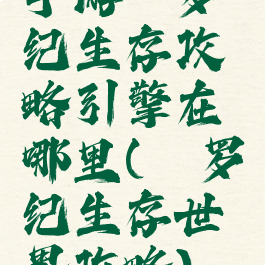 手游 罗
纪生存攻
略引擎在
哪里( 罗
纪生存世
界攻略)